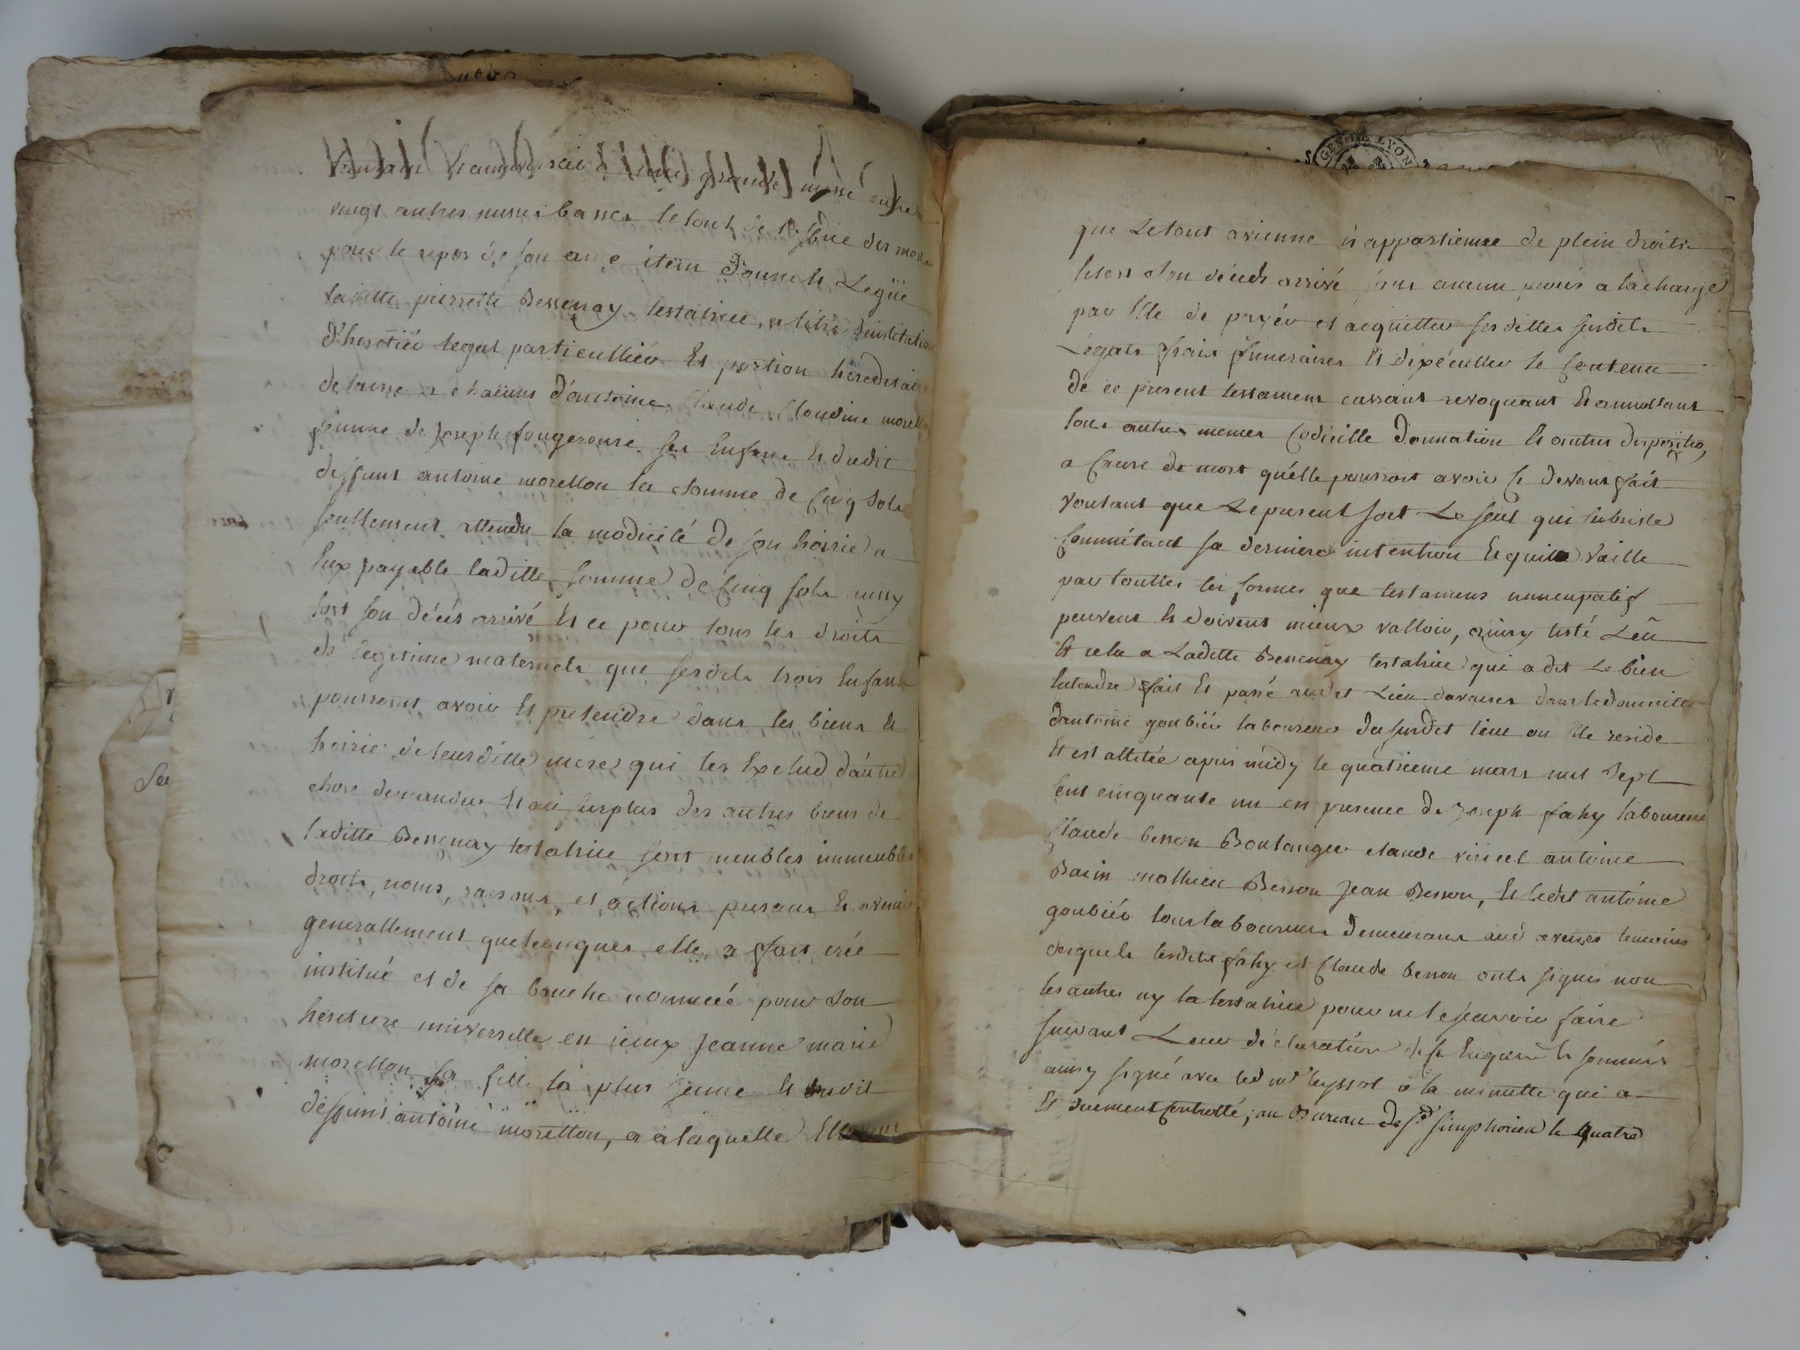 grande messe
vingt autres messes basses le tout de l'office des morts
pour le repos de son ame item donne et Legüe
laditte pierrette Bessenay testatrice, a titre d'institution
d'heritiér legat particulliér Et portion hereditaire
delaisse a chaiuns d'antoine, Claude, Claudine morellon
femme de Joseph fougerouse ses Enfans et dudit
deffunt antoine morellon la Somme de Cinq Sols
seullement attendu la modicité de son hoirie a
Eux payable laditte somme de Cinq sols aussy
tost son décés arrivé Et ce pour tous les droits
de legitime maternels que sesdits trois Enfans
pourront avoir Et pretendre dans les biens et
hoirie de leurditte mere qui les Exclud d'autre
chose demander Et au surplus des autres biens de
laditte Bessenay testatrice soit meubles immeubles
droits, noms, raisons, et actions presens Et avenir
generallement quelconques elle a fait crée
institué et de sa bouche nommeé pour Son
heritiere universelle en iceux Jeanne marie
morellon sa fille la plus Jeune Et dudit
deffunt antoine morellon, a laquelle Elle
GEN DE LYON
que Letout avienne et appartienne de plein droits
sitost son décéds arrivé sans aucun procés a la charge
par Elle de payér et acquitter ses dettes susdits
Légats frais funeraires Et d'exécutter le Contenu
de ce present testament cassant revoquant Et annullant
tous autres memes Codicille Donnation Et autres dispositio,
a Cause de mort qu'elle pourroit avoir Cy devant fait
voulant que Le present soit Le seul qui subsiste
Comme étant sa derniere intention Et qu'il vaille
par touttes les formes que testamens nuncupatif
peuvent Et doivent mieux valloir, ainsy testé Leu
Et relu a Laditte Bessenay testatrice qui a dit Le bien
Entendre fait Et passé audit Lieu davaises dans le domicille
dantoine goubiér laboureur du susdit lieu ou Elle reside
Et est allitée apres midy le quatrieme mars mil Sept
Cent cinquante un en presence de Joseph fahy laboureur
Claude besson Boulanger claude viricel antoine
Bazin mathieu Besson Jean Besson, Et ledit antoine
goubiér tous laboureurs demeurans audit avaises temoins
desquels lesdits fahy et Claude besson onts signés non
les autres ny la testatrice pour ne le sçavoir faire
suivant Leur déclaration de ce Enquis Et sommés
ainsy signé avec led no.re teyssot a la minutte qui a
Et duement Controllé, au Bureau de St simphorien le quatre